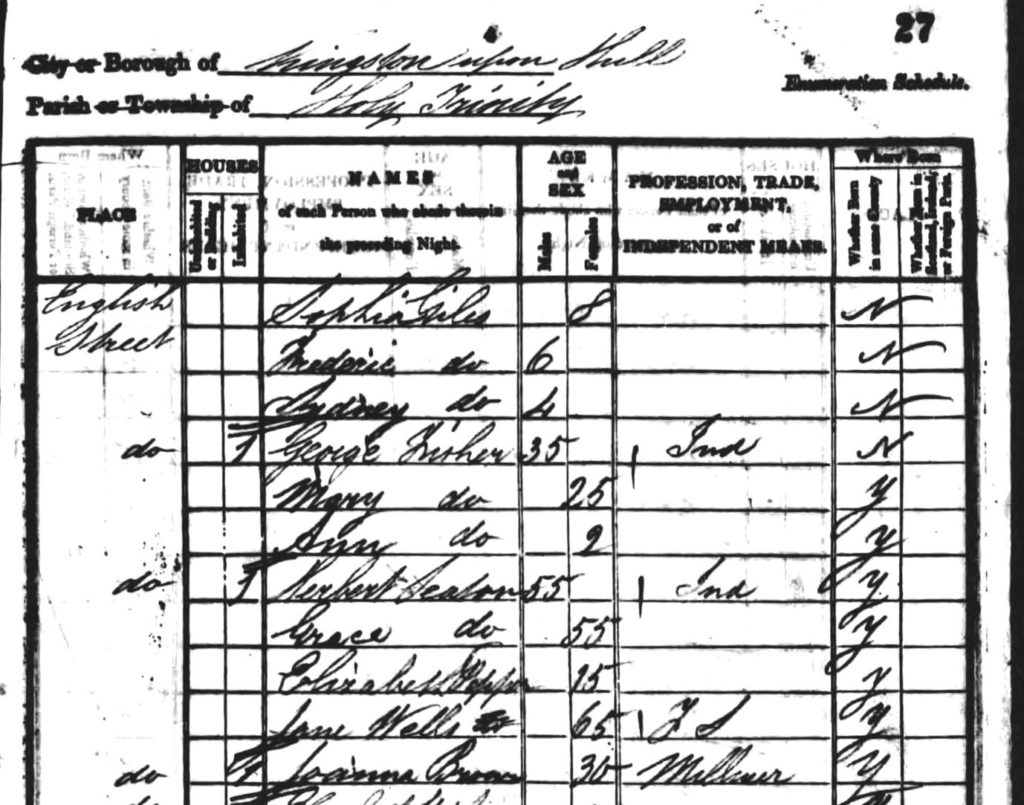 27
City or Borough of Kingston upon Hull
Enumeration Schedule.
Parish or Township of Holy Trinity
PLACE
HOUSES
Uninhabited or Building
Inhabited
NAMES
of each Person who abode therein
the preceding Night.
AGE
and
SEX
Males
Females
PROFESSION, TRADE,
EMPLOYMENT,
or of
INDEPENDENT MEANS.
Where Born
Whether Born in same County
Whether Born in Scotland, Ireland, or Foreign Parts.
English Sophia Giles 8 N
Street
Frederic do 6 N
Sydney do 4 N
do 1 George Fisher 35 Ind N
Mary do 25 y
Ann do 2 y
do 1 Herbert Seaton 55 Ind y
Grace do 55 y
Elizabeth 15 y
Jane Wells 65 F S y
do 1 Joanna Brown 30 Milliner y